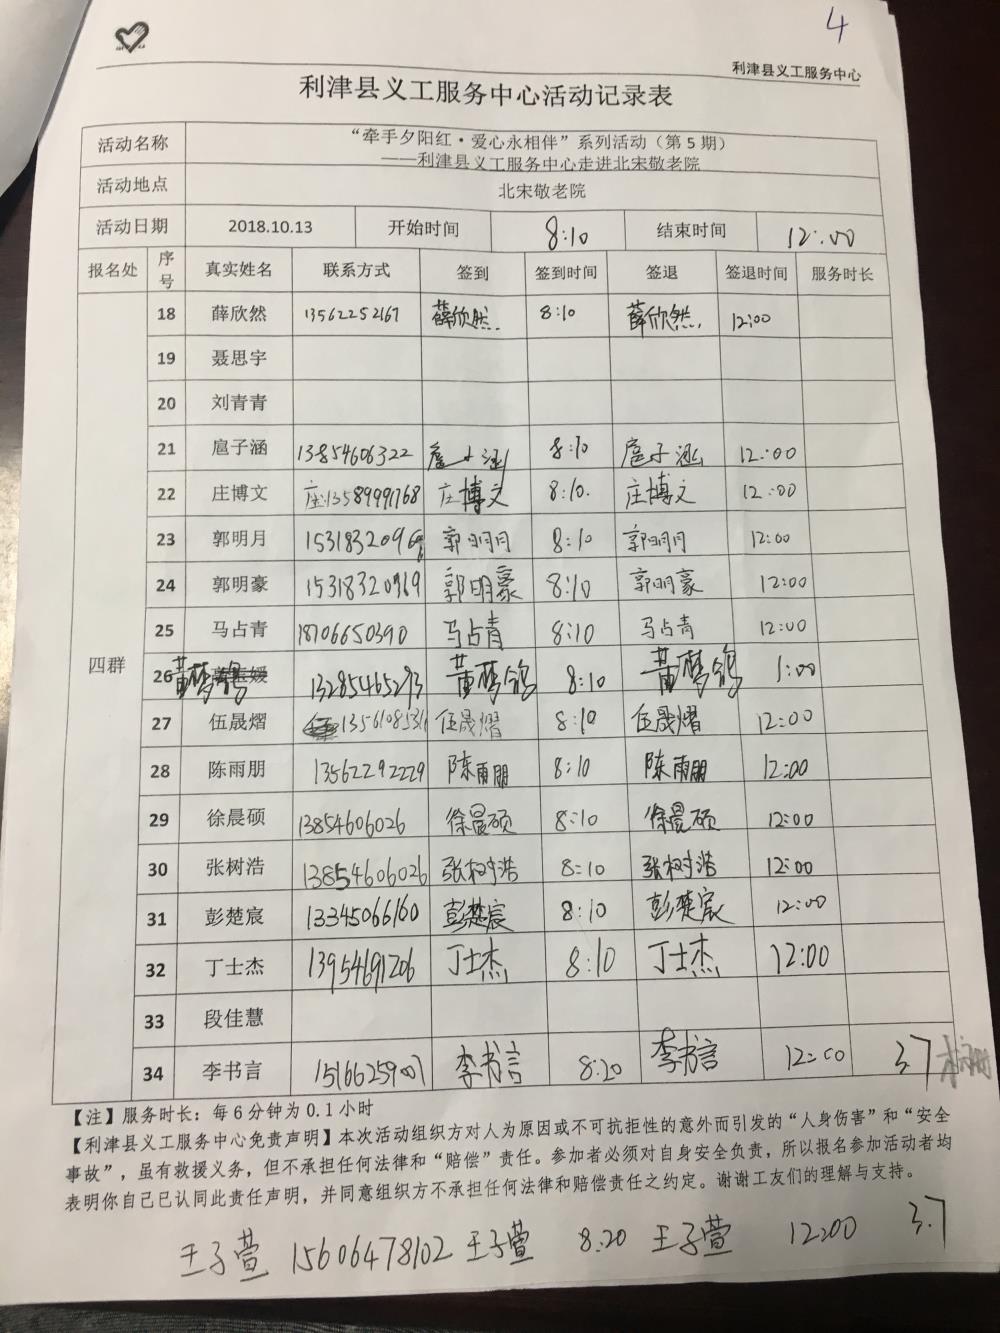 4
利津县义工服务中心
利津县义工服务中心活动记录表
活动名称 “牵手夕阳红·爱心永相伴”系列活动（第5期）
——利津县义工服务中心走进北宋敬老院
活动地点 北宋敬老院
活动日期 2018.10.13 开始时间 8:10 结束时间 12:00
报名处 序号 真实姓名 联系方式 签到 签到时间 签退 签退时间 服务时长
四群
18 薛欣然 13562252167 薛欣然 8:10 薛欣然 12:00
19 聂思宇
20 刘青青
21 扈子涵 13854606322 扈子涵 8:10 扈子涵 12:00
22 庄博文 庄:13589991768 庄博文 8:10. 庄博文 12:00
23 郭明月 郭明月 8:10 郭明月 12:00
24 郭明豪 15318320969 郭明豪 8:10 郭明豪 12:00
25 马占青 18706650390 马占青 8:10 马占青 12:00
26 董梦鸽 13285465293 董梦鸽 8:10 董梦鸽 1:00
27 伍晟熠 伍晟熠 8:10 伍晟熠 12:00
28 陈雨朋 13562292229 陈雨朋 8:10 陈雨朋 12:00
29 徐晨硕 13854606026 徐晨硕 8:10 徐晨硕 12:00
30 张树浩 13854606026 张树浩 8:10 张树浩 12:00
31 彭楚宸 13345066160 彭楚宸 8:10 彭楚宸 12:00
32 丁士杰 13954691206 丁士杰 8:10 丁士杰 12:00
33 段佳慧
34 李书言 15166259007 李书言 8:20 李书言 12:00 3.7
【注】服务时长：每6分钟为0.1小时
【利津县义工服务中心免责声明】本次活动组织方对人为原因或不可抗拒性的意外而引发的“人身伤害”和“安全
事故”，虽有救援义务，但不承担任何法律和“赔偿”责任。参加者必须对自身安全负责，所以报名参加活动者均
表明你自己已认同此责任声明，并同意组织方不承担任何法律和赔偿责任之约定。谢谢工友们的理解与支持。
王子萱 15606478102 王子萱 8:20 王子萱 12:00 3.7